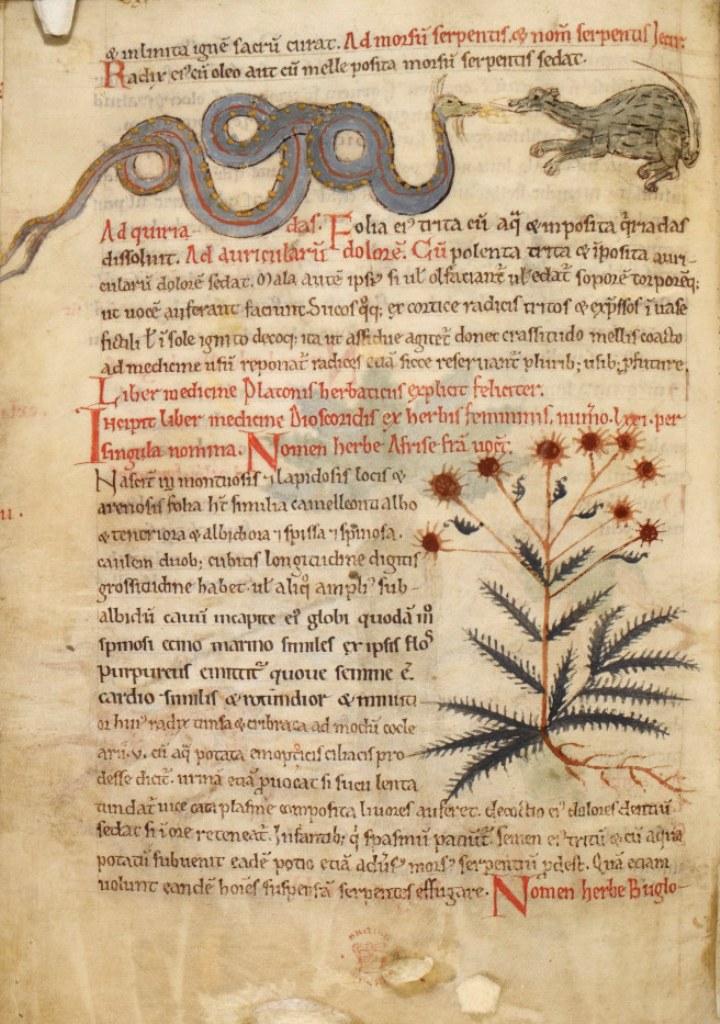 & inlinita ignē sacrū curat. Ad morsū serpentis. & nom̄ serpentis
Radix ei' cū oleo aut cū melle posita morsū serpentis sedat.
Ad quiria das. Folia ei' trita cū aq̄ & inposita q̄riadas
dissoluit. Ad auricularū dolorē. Cū polenta trita & īposita auri-
cularū dolorē sedat. Mala autē ipsi' si ul' olfaciant̄ ul' edat̄ soporē torporēq;
ut uocē auferant faciunt. Sucos q̄q; ex cortice radicis tritos & exp̄ssos ī uase
fictili l' ī sole ignito decoq; ita ut assidue agitet̄ donec crassitudo mellis coacto
ad medicine usū reponat̄ radices etiā sicce reseruant̄ plurib; usib; ꝓfuture.
Liber medicine Platonis herbaticus explicit feliciter.
Incipit liber medicine Dioscoridis ex herbis femininis. numr̄o. lxxi. per
singula nomina. Nomen herbe
Nascit̄ in montuosis ⁊ lapidosis locis &
arenosis folia ht̄ similia camelleonta albo
& teneriora & albidiora ⁊ spissa ⁊ spinosa.
caulem duob; cubitis longitudine digitis
grossitudine habet. ul' aliq̄ ampli' sub-
albidū cauū incapite ei' globi quodā m̊
spinosi ecino marino similes ex ipsis flos
purpureus emittit̄ quoue semine ē.
cardio similis & rotundior & minuti
or hui' radix tunsa & cribrata ad modū cocle
arii. v. cū aq̄ potata emoptoicis ciliacis pro-
desse dicit̄. urinā etiā ꝓuocat si sucu lenta
tundat̄ uice cataplasme composita liuores auferet. decoctio ei' dolores dentiū
sedat si ī ore reteneat̄. Infantib; q' spasmū paciunt̄ semen ei' tritū & cū aqua
potatū subuenit eadē potio etiā aduers' mors' serpentiū ꝓdest. Quā etiam
uolunt eandē hoīes suspensā serpentes effugare. Nomen herbe Buglo-